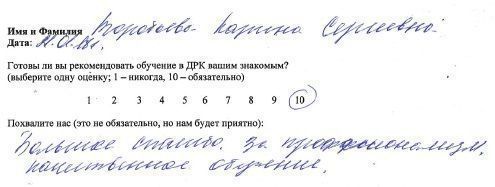 Имя и Фамилия Воробьева Карина Сергеевна
Дата:
Готовы ли вы рекомендовать обучение в ДРК вашим знакомым?
(выберите одну оценку; 1 – никогда, 10 – обязательно)
1 2 3 4 5 6 7 8 9 10
Похвалите нас (это не обязательно, но нам будет приятно):
Большое спасибо за профессионализм,
качественное обучение.